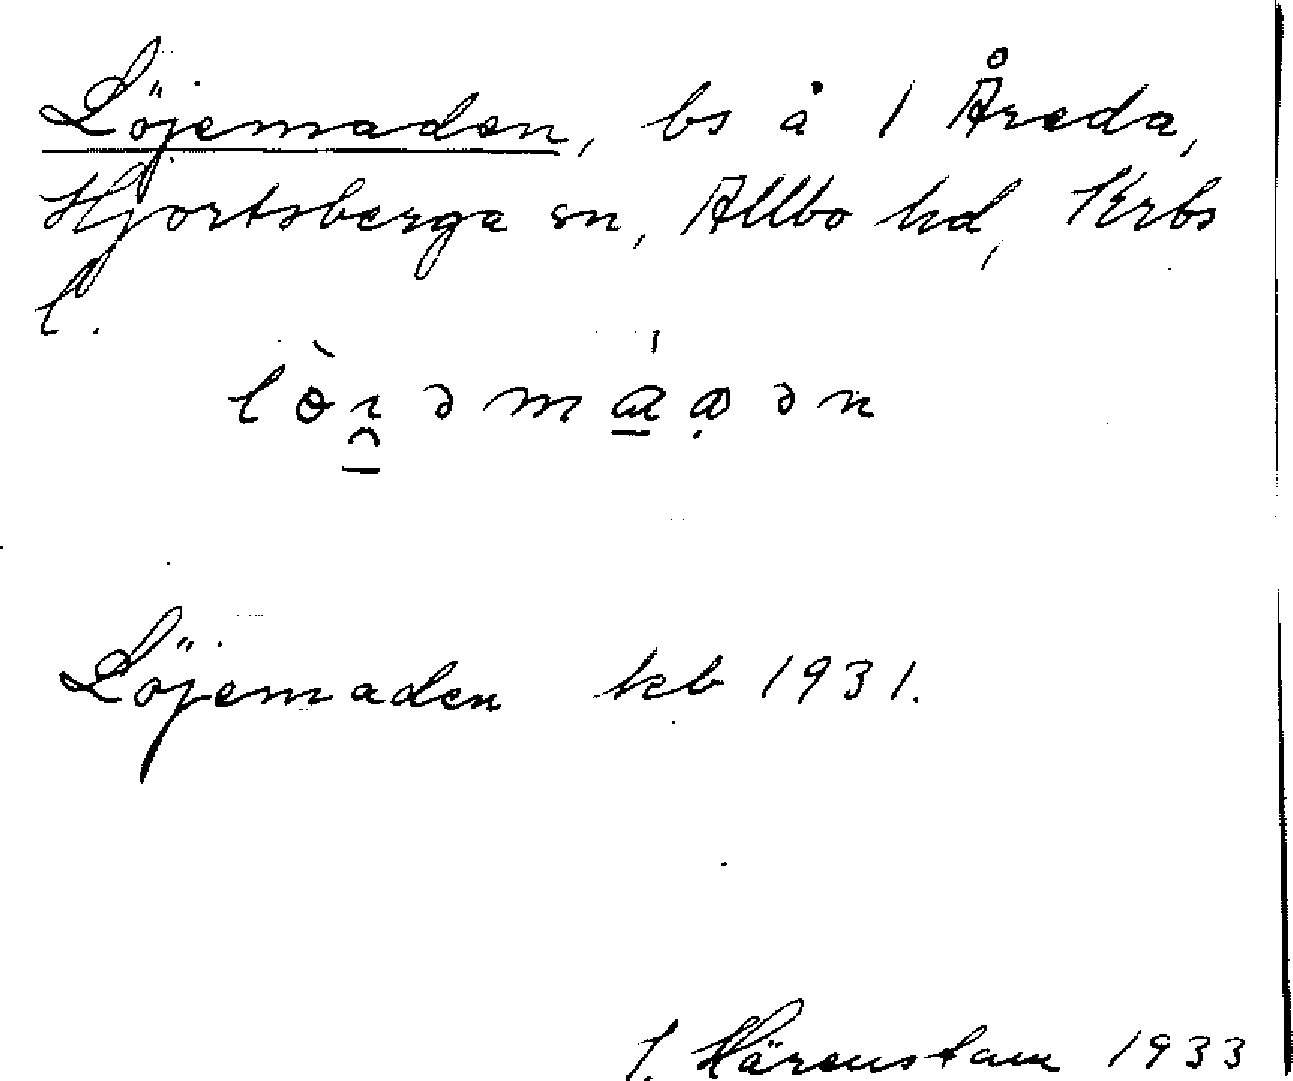 Löjemaden, bs å 1 Åreda,
Hjortsberga sn, Allbo hd, Krbs
l.
Löjemaden kb 1931.
J. Härenstam 1933